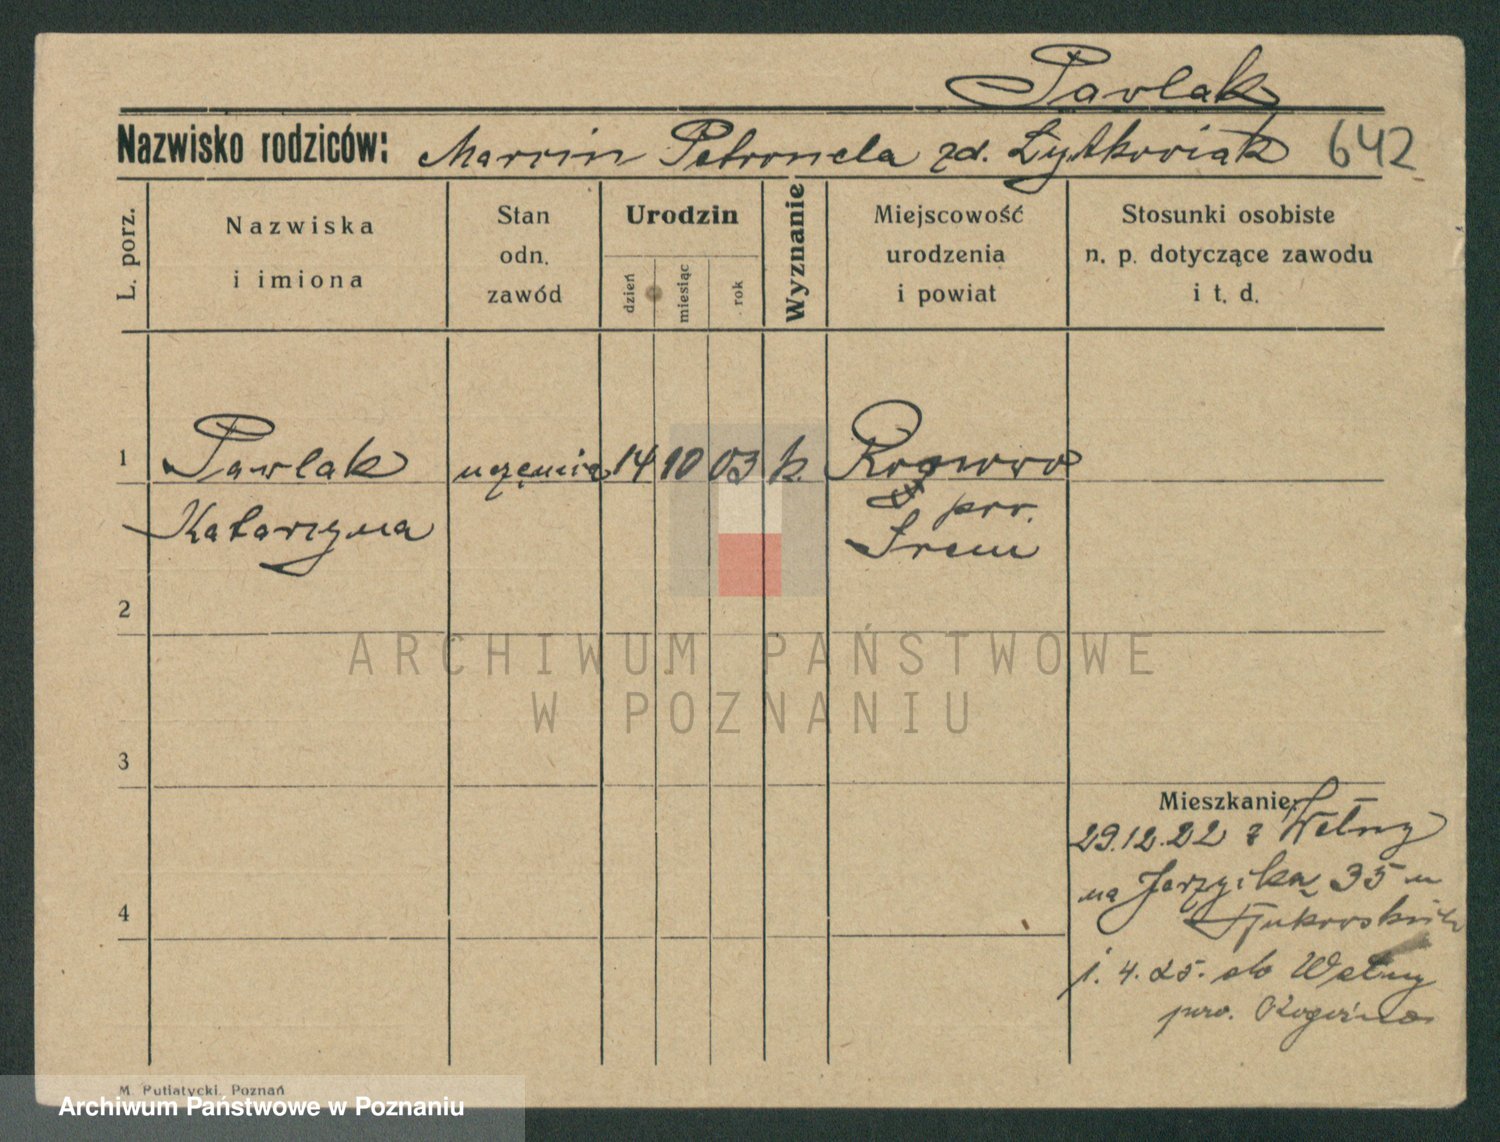 Pawlak
Nazwisko rodziców: Marcin Petronela zd. Żytkowiak 642
L. porz.
Nazwiska
i imiona
Stan
odn.
zawód
Urodzin
dzień
miesiąc
rok
Wyznanie
Miejscowość
urodzenia
i powiat
Stosunki osobiste
n. p. dotyczące zawodu
i t. d.
1 Pawlak 14 10 03 k.
Katarzyna
pow.
Śrem
2
ARCHIWUM PAŃSTWOWE
W POZNANIU
3
Mieszkanie:
29.12.22 z Wełny
na 35 u
4
1. 4. 25. do Wełny
pow.
M. Putiatycki, Poznań
Archiwum Państwowe w Poznaniu